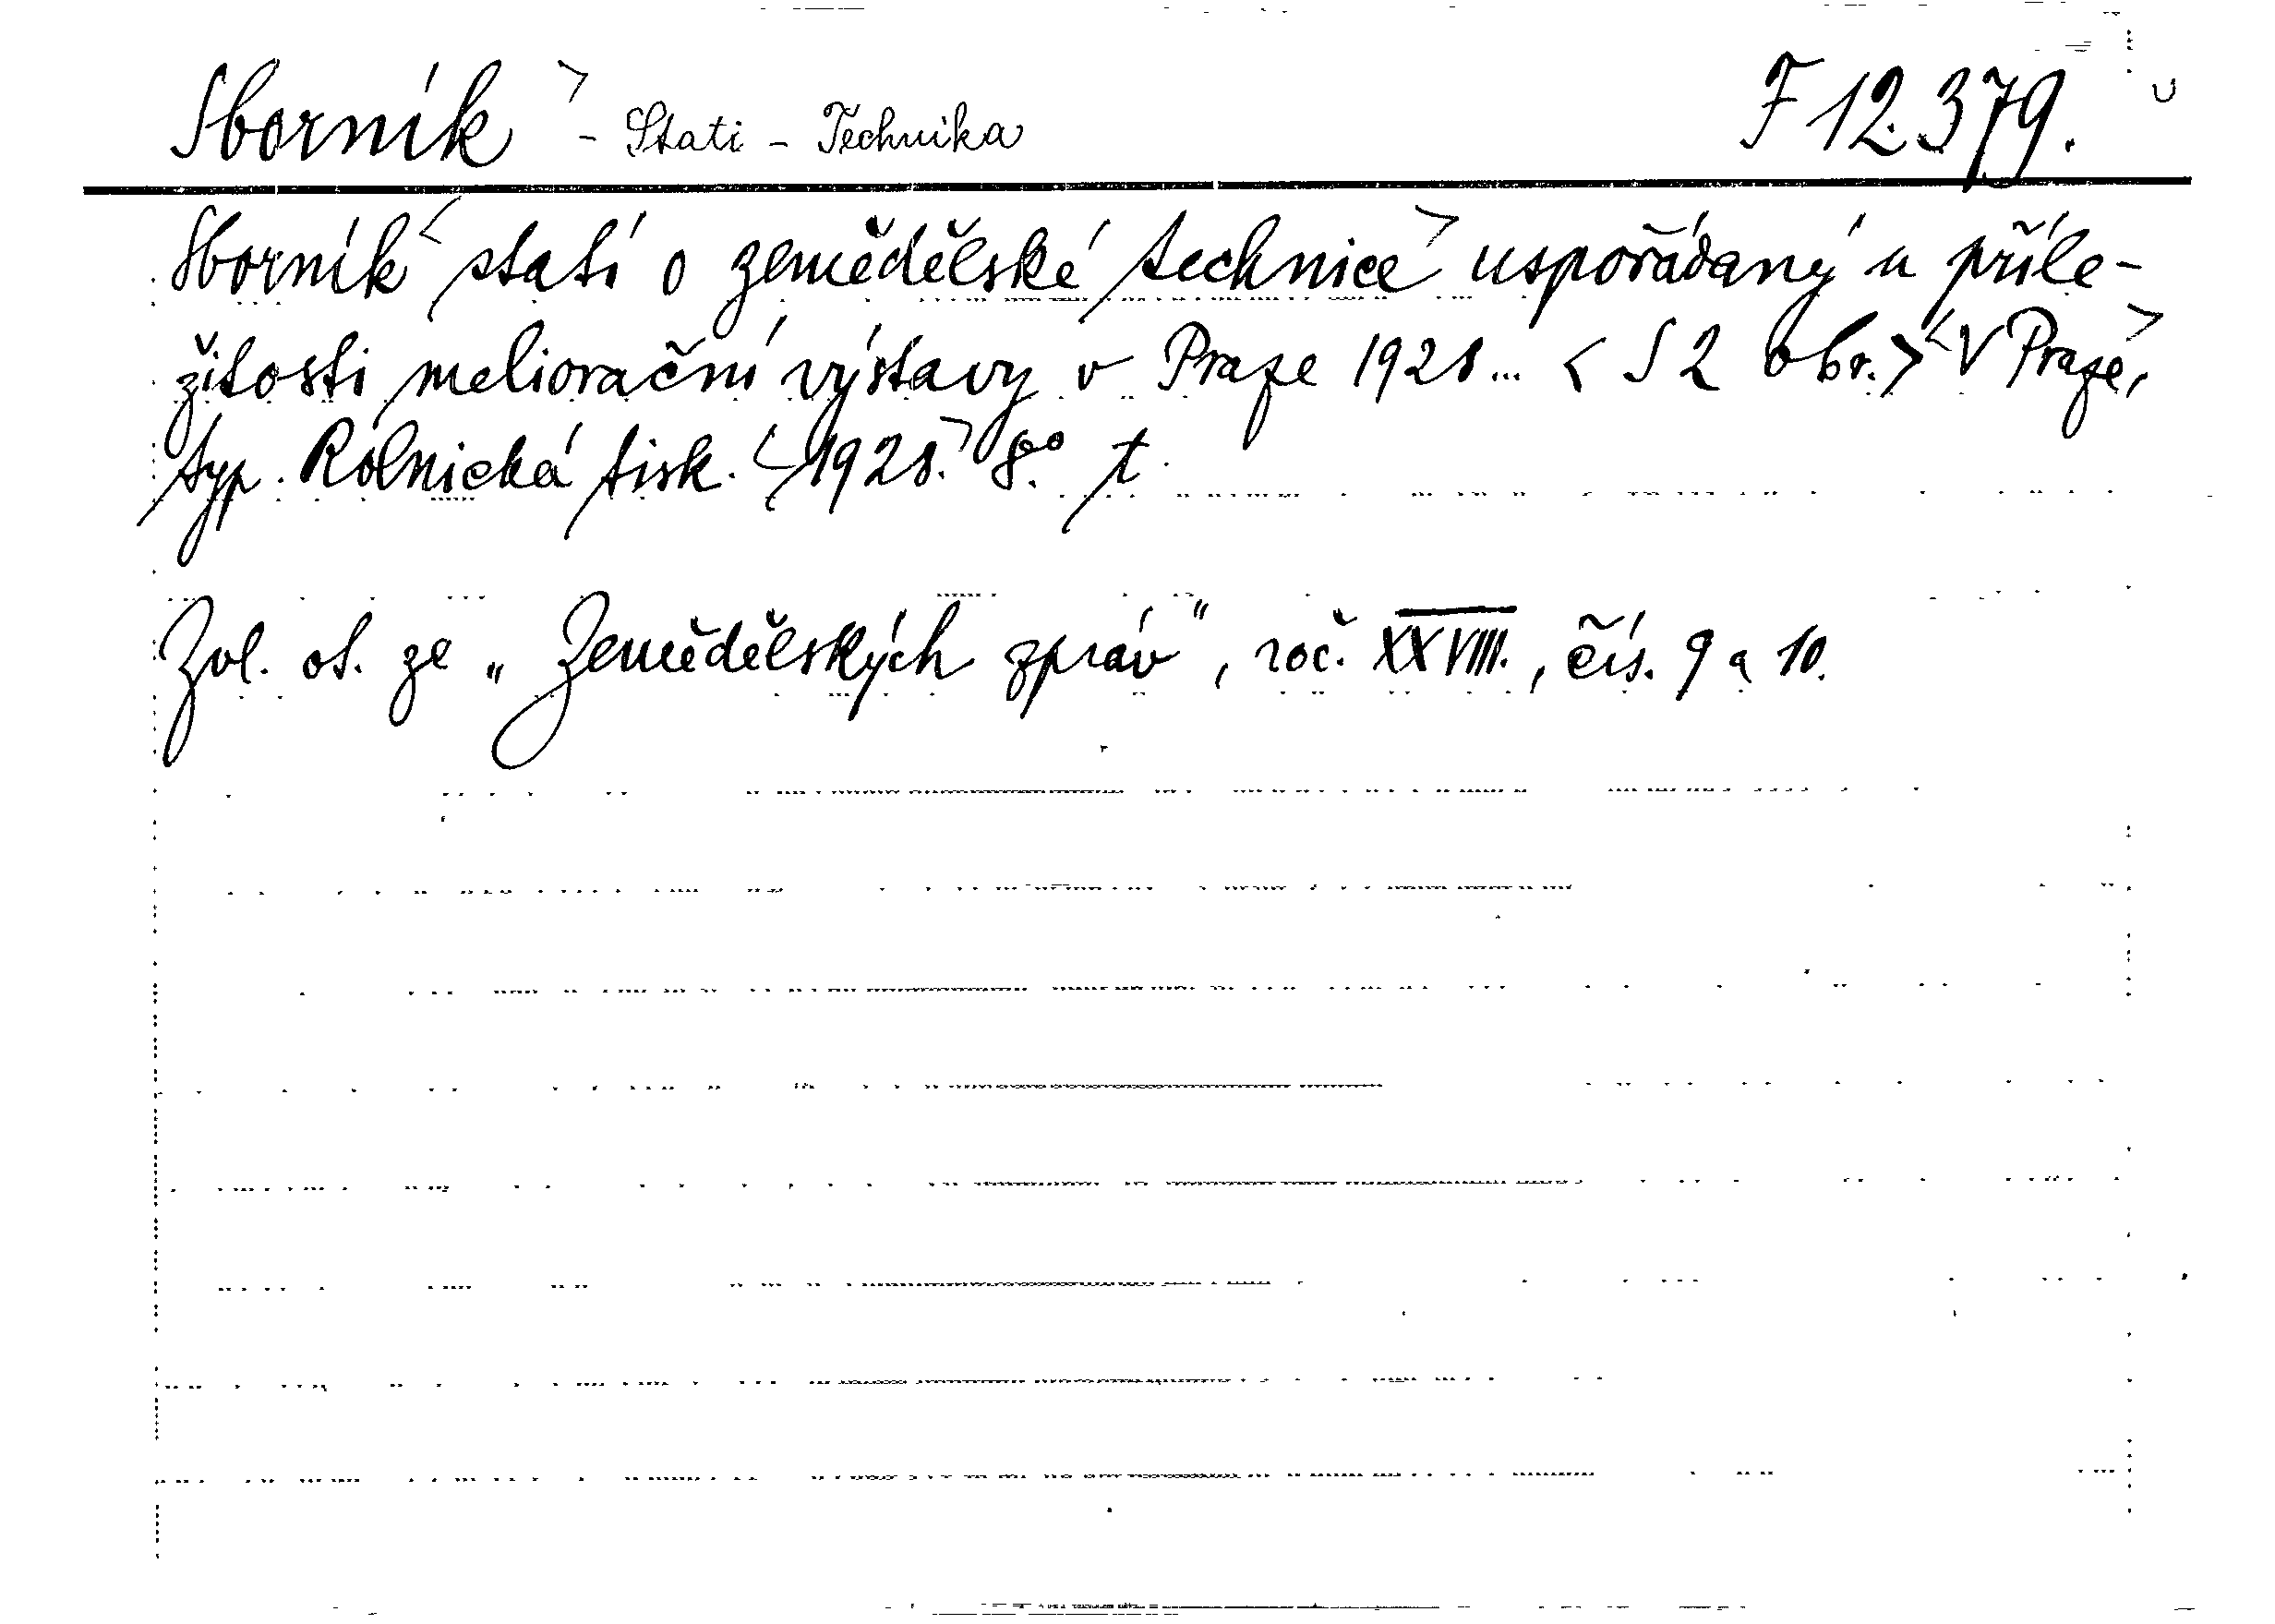 Sborník - Stati - Technika F 12.379.
Sborník statí o zemědělské technice uspořádaný u příle-
žitosti meliorační výstavy v Praze 1928... < S 2 obr. > V Praze,
typ. Rolnická tisk. 1928. 8° t.
Zvl. ot. ze „Zemědělských zpráv", roč. XXVIII., čís. 9 a 10.